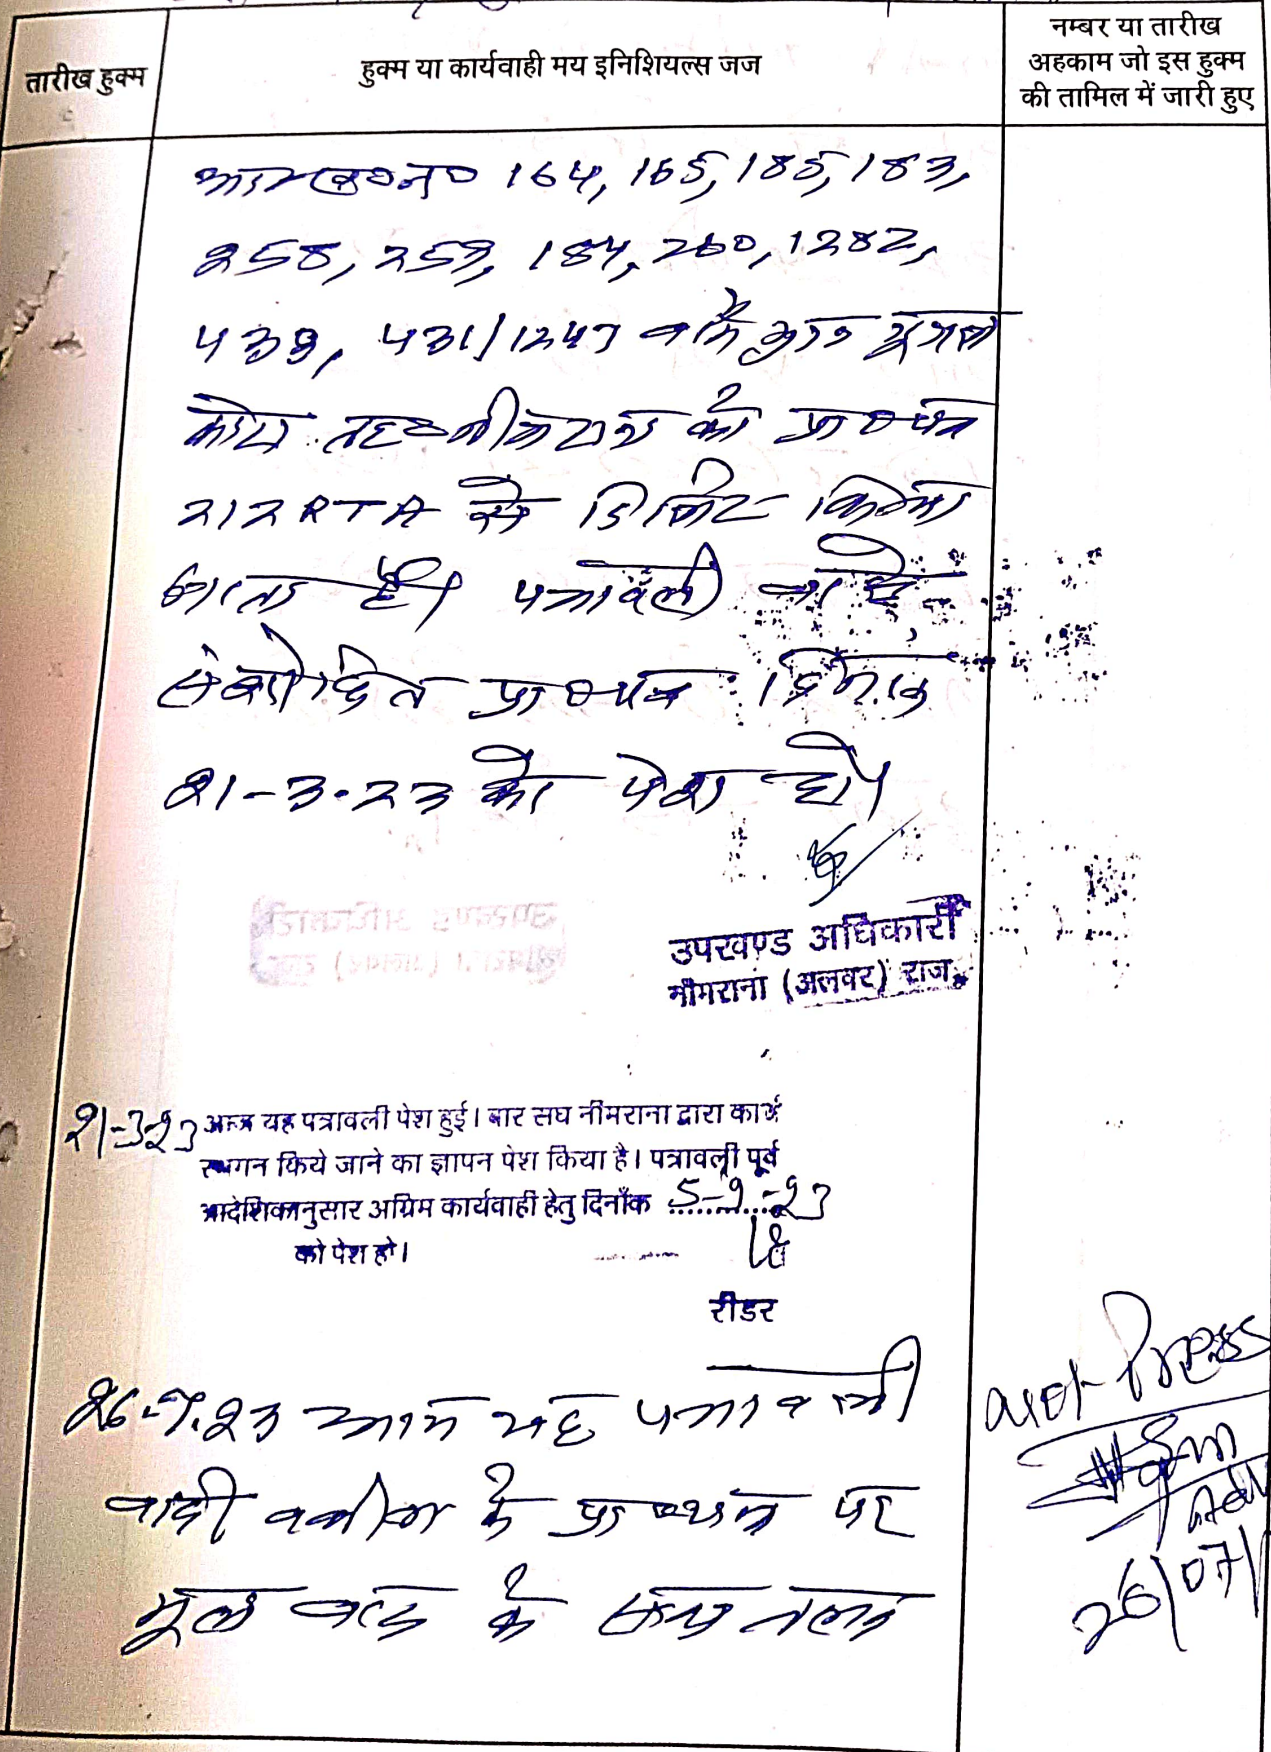 तारीख हुक्म
हुक्म या कार्यवाही मय इनिशियल्स जज
नम्बर या तारीख
अहकाम जो इस हुक्म
की तामिल में जारी हुए
164, 165, 185, 183,
258, 259, 184, 260, 1282,
439, 431/1247
को प्रा०पत्र
212 RTA से डिलिट किया
जाता है। पत्रावली वास्ते
संशोधित प्रा०पत्र दिनांक
21-3-23 को पेश हो।
उपखण्ड अधिकारी
नीमराना (अलवर) राज.
21-3-23 आज यह पत्रावली पेश हुई। बार संघ नीमराना द्वारा कार्य
स्थगन किये जाने का ज्ञापन पेश किया है। पत्रावली पूर्व
आदेशिकानुसार अग्रिम कार्यवाही हेतु दिनाँक 5-9-23
को पेश हो।
रीडर
26-7-23 आज यह पत्रावली
वादी वकील के प्रा०पत्र पर
मूल वाद के साथ तलब
Not Press
Adv
26/07/